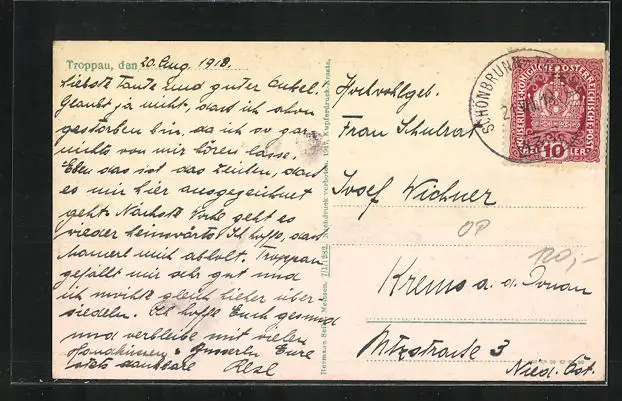 Troppau, den 20 Aug. 1918.
Liebste Tante und guter Onkel.
Glaubt ja nicht, dass ich schon
gestorben bin, da ich so gar
nichts von mir hören lasse.
Eben das ist das Zeichen, dass
es mir hier ausgezeichnet
geht. Nächste Woche geht es
wieder heimwärts. Ich hoffe, dass
mich abholt. Troppau
gefällt mir sehr gut und
ich möchte gleich hieher über-
siedeln. Ich hoffe Euch gesund
und verbleibe mit vielen
Handküssen u. Busserln Eure
stets dankbare Resl
Hermann Seibt, Meissen. 7/1/1282. Nachdruck verboten. 1917. Kupferdruck-Ersatz.
Hochwohlgeb.
Frau Schulrat
Josef Wichner
Krems a. d. Donau
3
Nied. Öst.
SCHÖNBRUNN
10
HELLER
OP
120,-